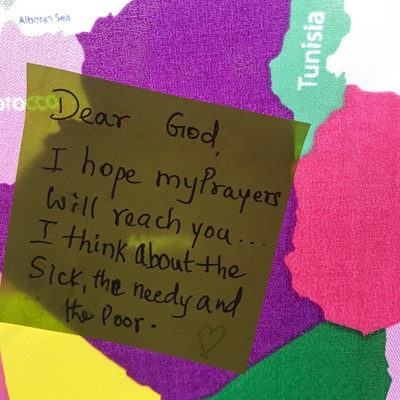 Alboran Sea
Tunisia
orocco
Dear God,
I hope my Prayers
will reach you...
I think about the
Sick, the needy and
the Poor.